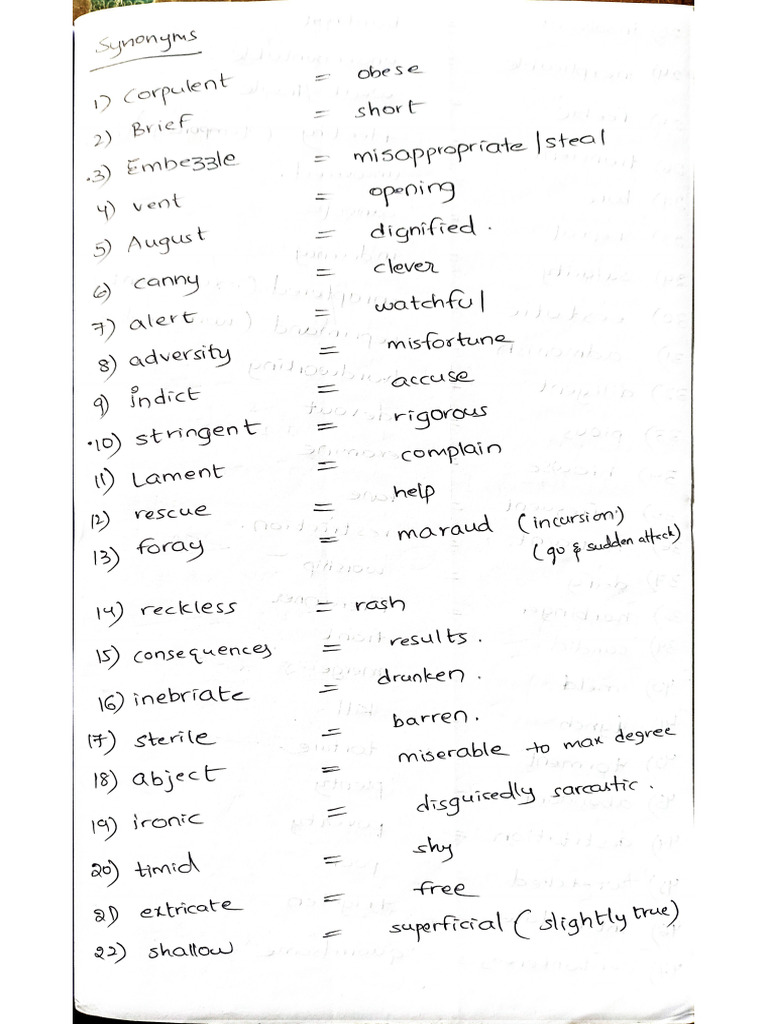 Synonyms
1) Corpulent = obese
2) Brief = short
.3) Embezzle = misappropriate / steal
4) vent = opening
5) August = dignified.
6) canny = clever
7) alert = watchful
8) adversity = misfortune
9) indict = accuse
.10) stringent = rigorous
11) Lament = complain
12) rescue = help
13) foray = maraud (incursion)
(go & sudden attack)
14) reckless = rash
15) consequences = results.
16) inebriate = drunken.
17) sterile = barren.
18) abject = miserable to max degree
19) ironic = disguisedly sarcastic.
20) timid = shy
21) extricate = free
22) shallow = superficial (slightly true)